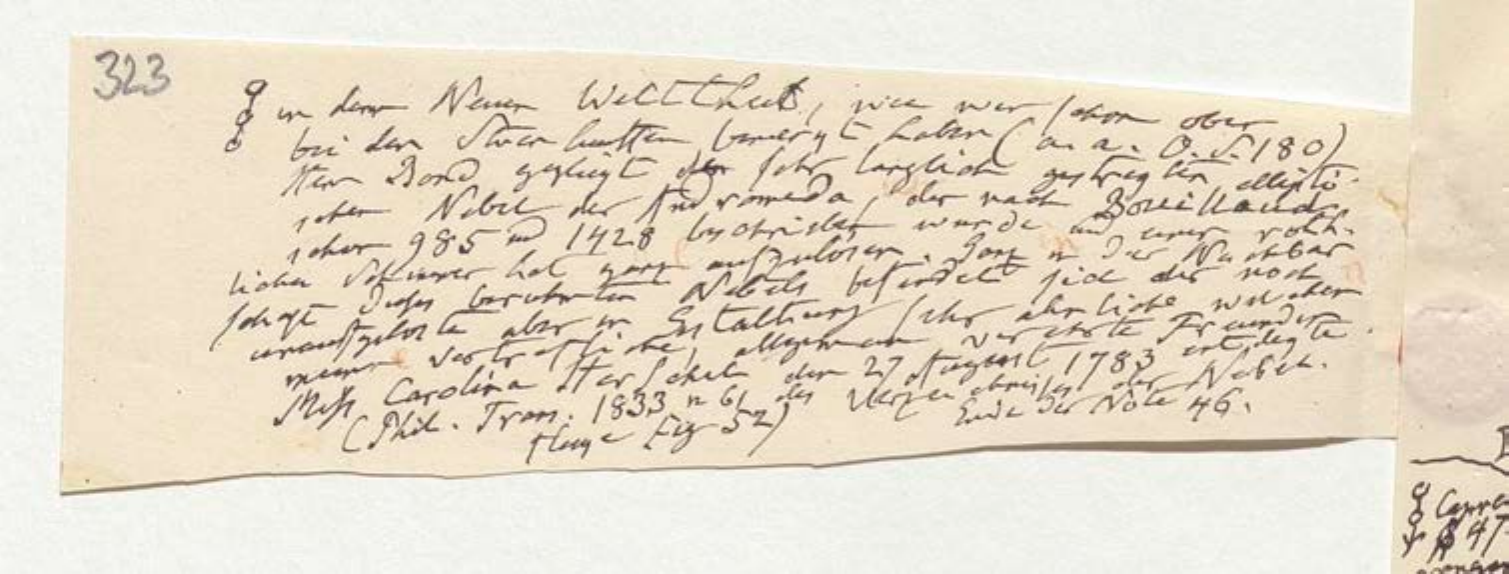 323
in dem Neuen Welttheil, wie wir schon oben
bei den Sternhaufen bemerkt haben (a. a. O. S. 180)
Herr Bond geglückt den sehr länglich gestreckten ellipti-
schen Nebel der Andromeda, der nach Bouillaud
schon 985 und 1428 beschrieben wurde und einen röth-
lichen Schimmer hat ganz aufzulösen. Ganz in der Nachbar
schaft dieses berühmten Nebels befindet sich der noch
unaufgelöste aber in Gestaltung sehr ähnliche welchen
meine vortreffliche, allgemein verehrte Freundin
Miss Carolina Herschel den 27 August 1783 entdeckte
(Phil. Trans. 1833 n 61 des Verzeichnisses der Nebel.
Fig 52) Ende der Note 46.